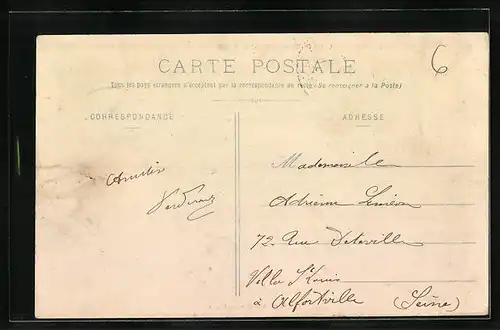 6
CARTE POSTALE
Tous les pays étrangers n'acceptent pas la correspondance au recto (Se renseigner à la Poste)
CORRESPONDANCE
ADRESSE
Mademoiselle
Adrienne
72 Rue
Villa St Louis
à Alfortville (Seine)